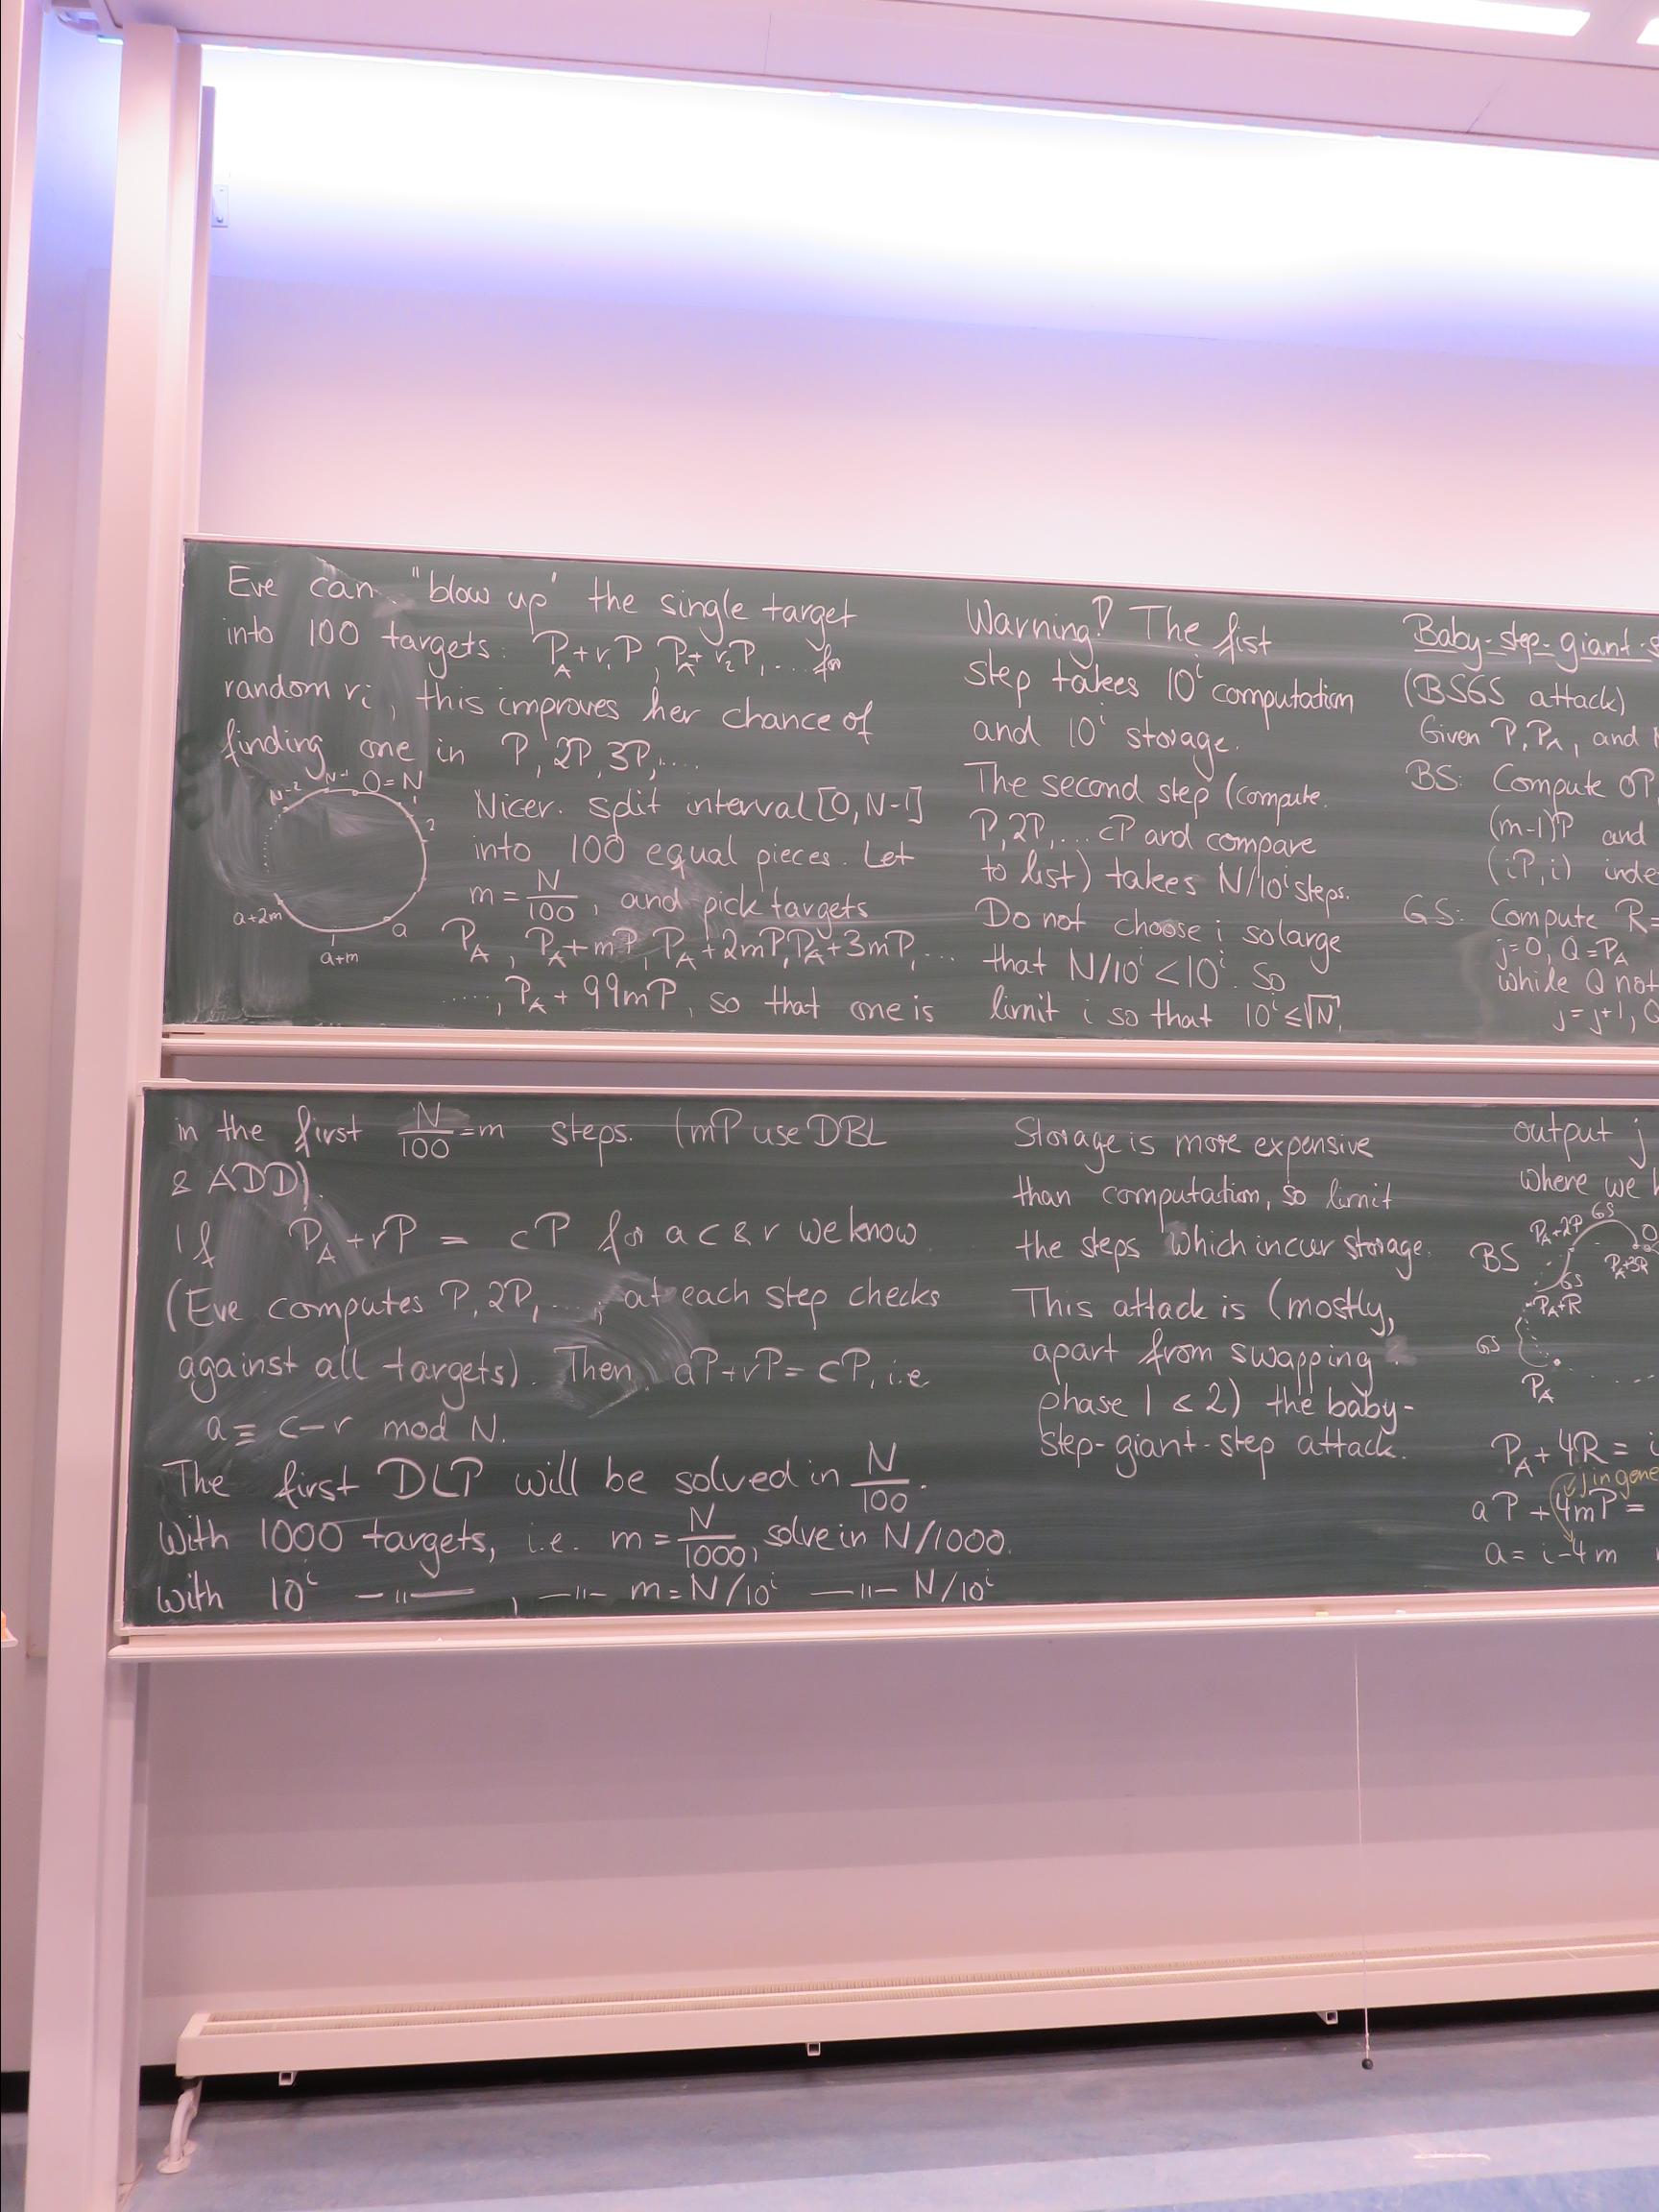 Eve can "blow up" the single target
into 100 targets: P_A + r_1P, P_A + r_2P, ... for
random r_i, this improves her chance of
finding one in P, 2P, 3P, ....
N-2 N-1 0=N
1
2
a
a+m
a+2m
Nicer. split interval [0, N-1]
into 100 equal pieces. Let
m = N/100, and pick targets
P_A, P_A + mP, P_A + 2mP, P_A + 3mP, ...
....., P_A + 99mP, so that one is
in the first N/100 = m steps. (mP use DBL
& ADD).
If P_A + rP = cP for a c & r we know
(Eve computes P, 2P, ..., at each step checks
against all targets). Then aP + rP = cP, i.e
a ≡ c - r mod N.
The first DLP will be solved in N/100.
With 1000 targets, i.e. m = N/1000, solve in N/1000.
With 10^i —"— , —"— m = N/10^i —"— N/10^i
Warning! The fist
step takes 10^i computation
and 10^i storage.
The second step (compute
P, 2P, ... cP and compare
to list) takes N/10^i steps.
Do not choose i so large
that N/10^i < 10^i. So
limit i so that 10^i ≤ √N.
Storage is more expensive
than computation, so limit
the steps which incur storage.
This attack is (mostly,
apart from swapping
phase 1 & 2) the baby-
step-giant-step attack.
Baby-step-giant-s
(BSGS attack)
Given P, P_A, and
BS: Compute 0P,
(m-1)P and
(iP, i) inde
GS: Compute R =
j=0, Q = P_A
while Q not
j = j+1, Q
output j
where we
P_A+2P GS
0
BS
P_A+3R
GS
P_A+R
GS
P_A
P_A + 4R = i
j in gene
aP + 4mP =
a = i - 4m